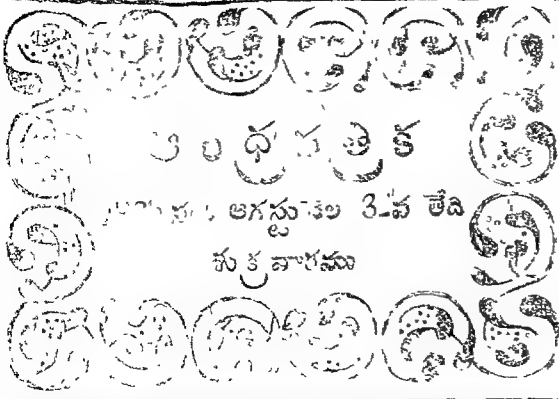 ఆంధ్రపత్రిక
ఆగస్టు నెల 3-వ తేది
శుక్రవారము